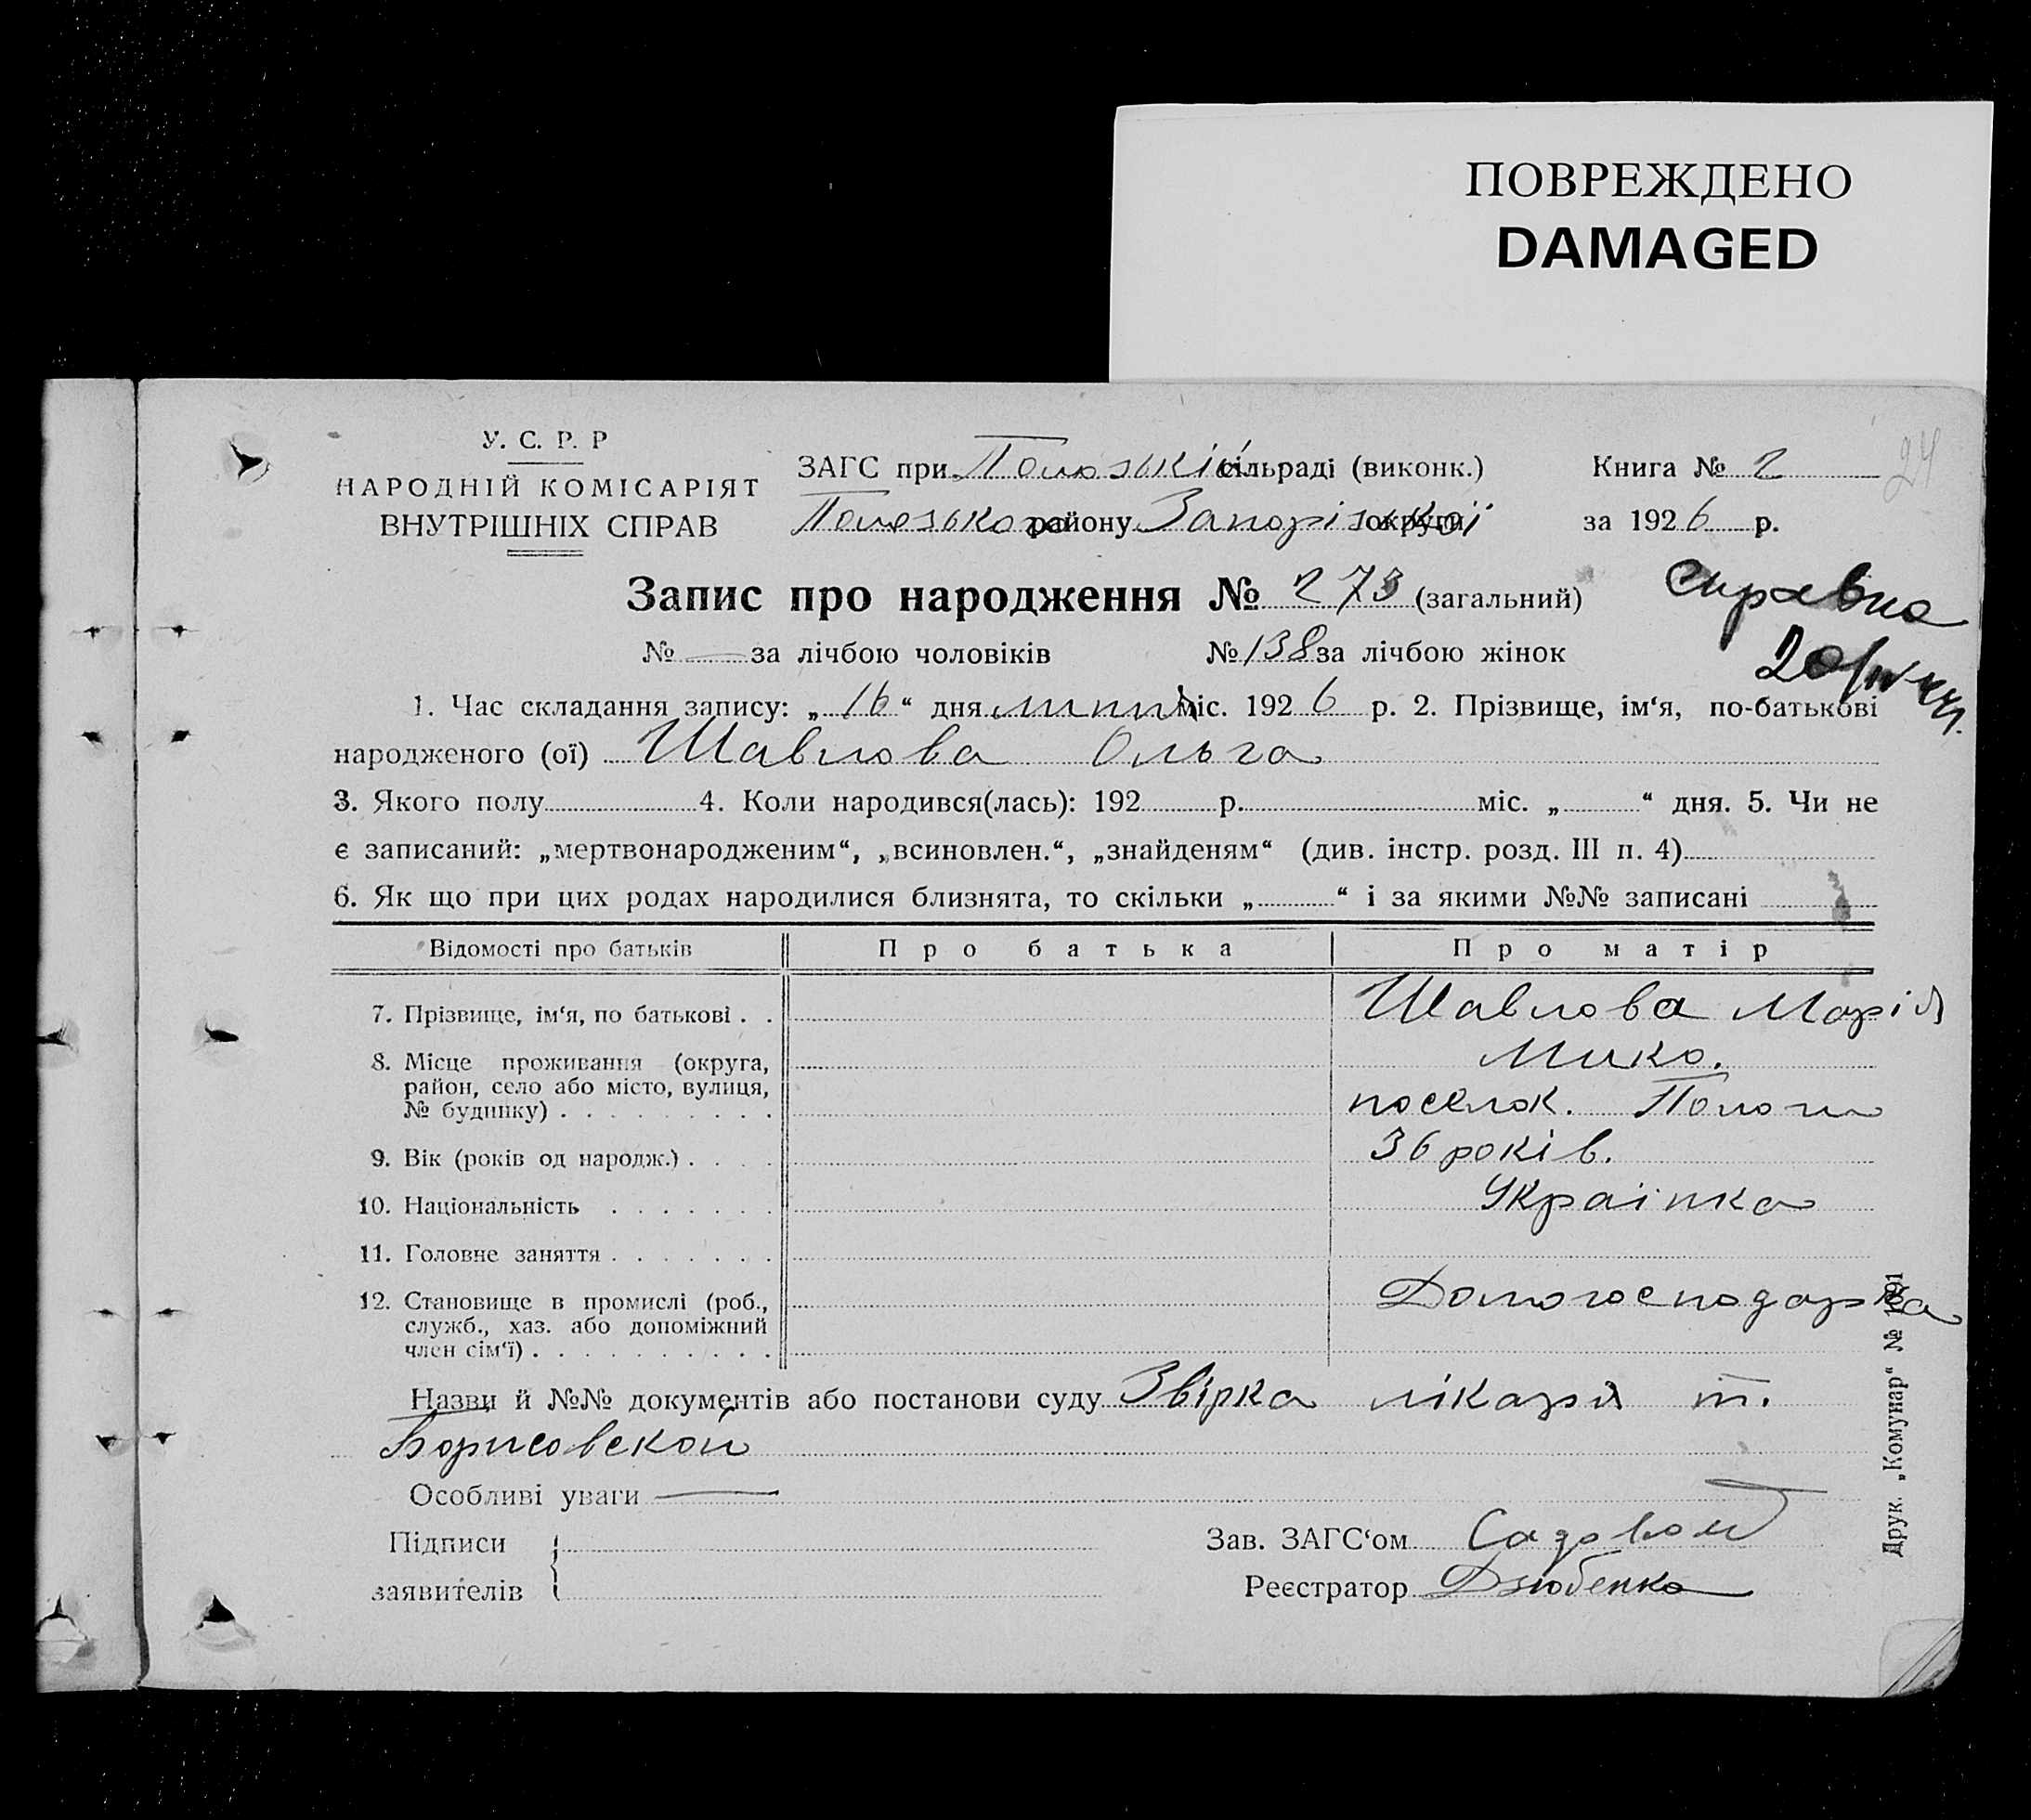 ПОВРЕЖДЕНО
DAMAGED
24
У. С. Р. Р
НАРОДНІЙ КОМІСАРІЯТ
ВНУТРІШНІХ СПРАВ
ЗАГС при Пологській сільраді (виконк.)
Книга № 2
Пологського району Запорізької округи
за 1926 р.
Запис про народження № 273 (загальний)
Справка
№ — за лічбою чоловіків № 138 за лічбою жінок
1. Час складання запису: „16“ дня липня міс. 1926 р. 2. Прізвище, ім‘я, по-батькові
народженого (ої) Шавлова Ольга
3. Якого полу 4. Коли народився(лась): 192 р. міс. „ “ дня. 5. Чи не
є записаний: „мертвонародженим“, „всиновлен.“, „знайденям“ (див. інстр. розд. III п. 4)
6. Як що при цих родах народилися близнята, то скільки „ “ і за якими №№ записані
Відомості про батьків Про батька Про матір
7. Прізвище, ім‘я, по батькові . . Шавлова Марія
Мико.
8. Місце проживання (округа,
район, село або місто, вулиця,
№ будинку) . . . . . . . . . поселок. Пологи
9. Вік (років од народж.) . . . . 36 років.
10. Національність . . . . . . . Українка
11. Головне заняття . . . . . . .
12. Становище в промислі (роб.,
служб., хаз. або допоміжний
член сім‘ї) . . . . . . . . . . Домогосподарка
Назви й №№ документів або постанови суду Звірка лікаря т.
Борисовской
Особливі уваги —
Підписи
заявителів
Зав. ЗАГС‘ом Садовой
Реєстратор Дзюбенко
Друк. „Комунар“ № 1691